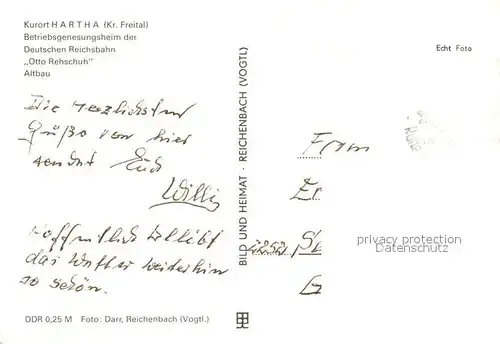 Kurort H A R T H A (Kr. Freital)
Betriebsgenesungsheim der
Deutschen Reichsbahn
„Otto Rehschuh"
Altbau
Echt Foto
Die herzlichsten
Grüße von hier
sendet Euch
Willi
Hoffentlich bleibt
das Wetter weiterhin
so schön.
BILD UND HEIMAT · REICHENBACH (VOGTL)
Fram
privacy protection
Datenschutz
DDR 0,25 M Foto: Darr, Reichenbach (Vogtl.)